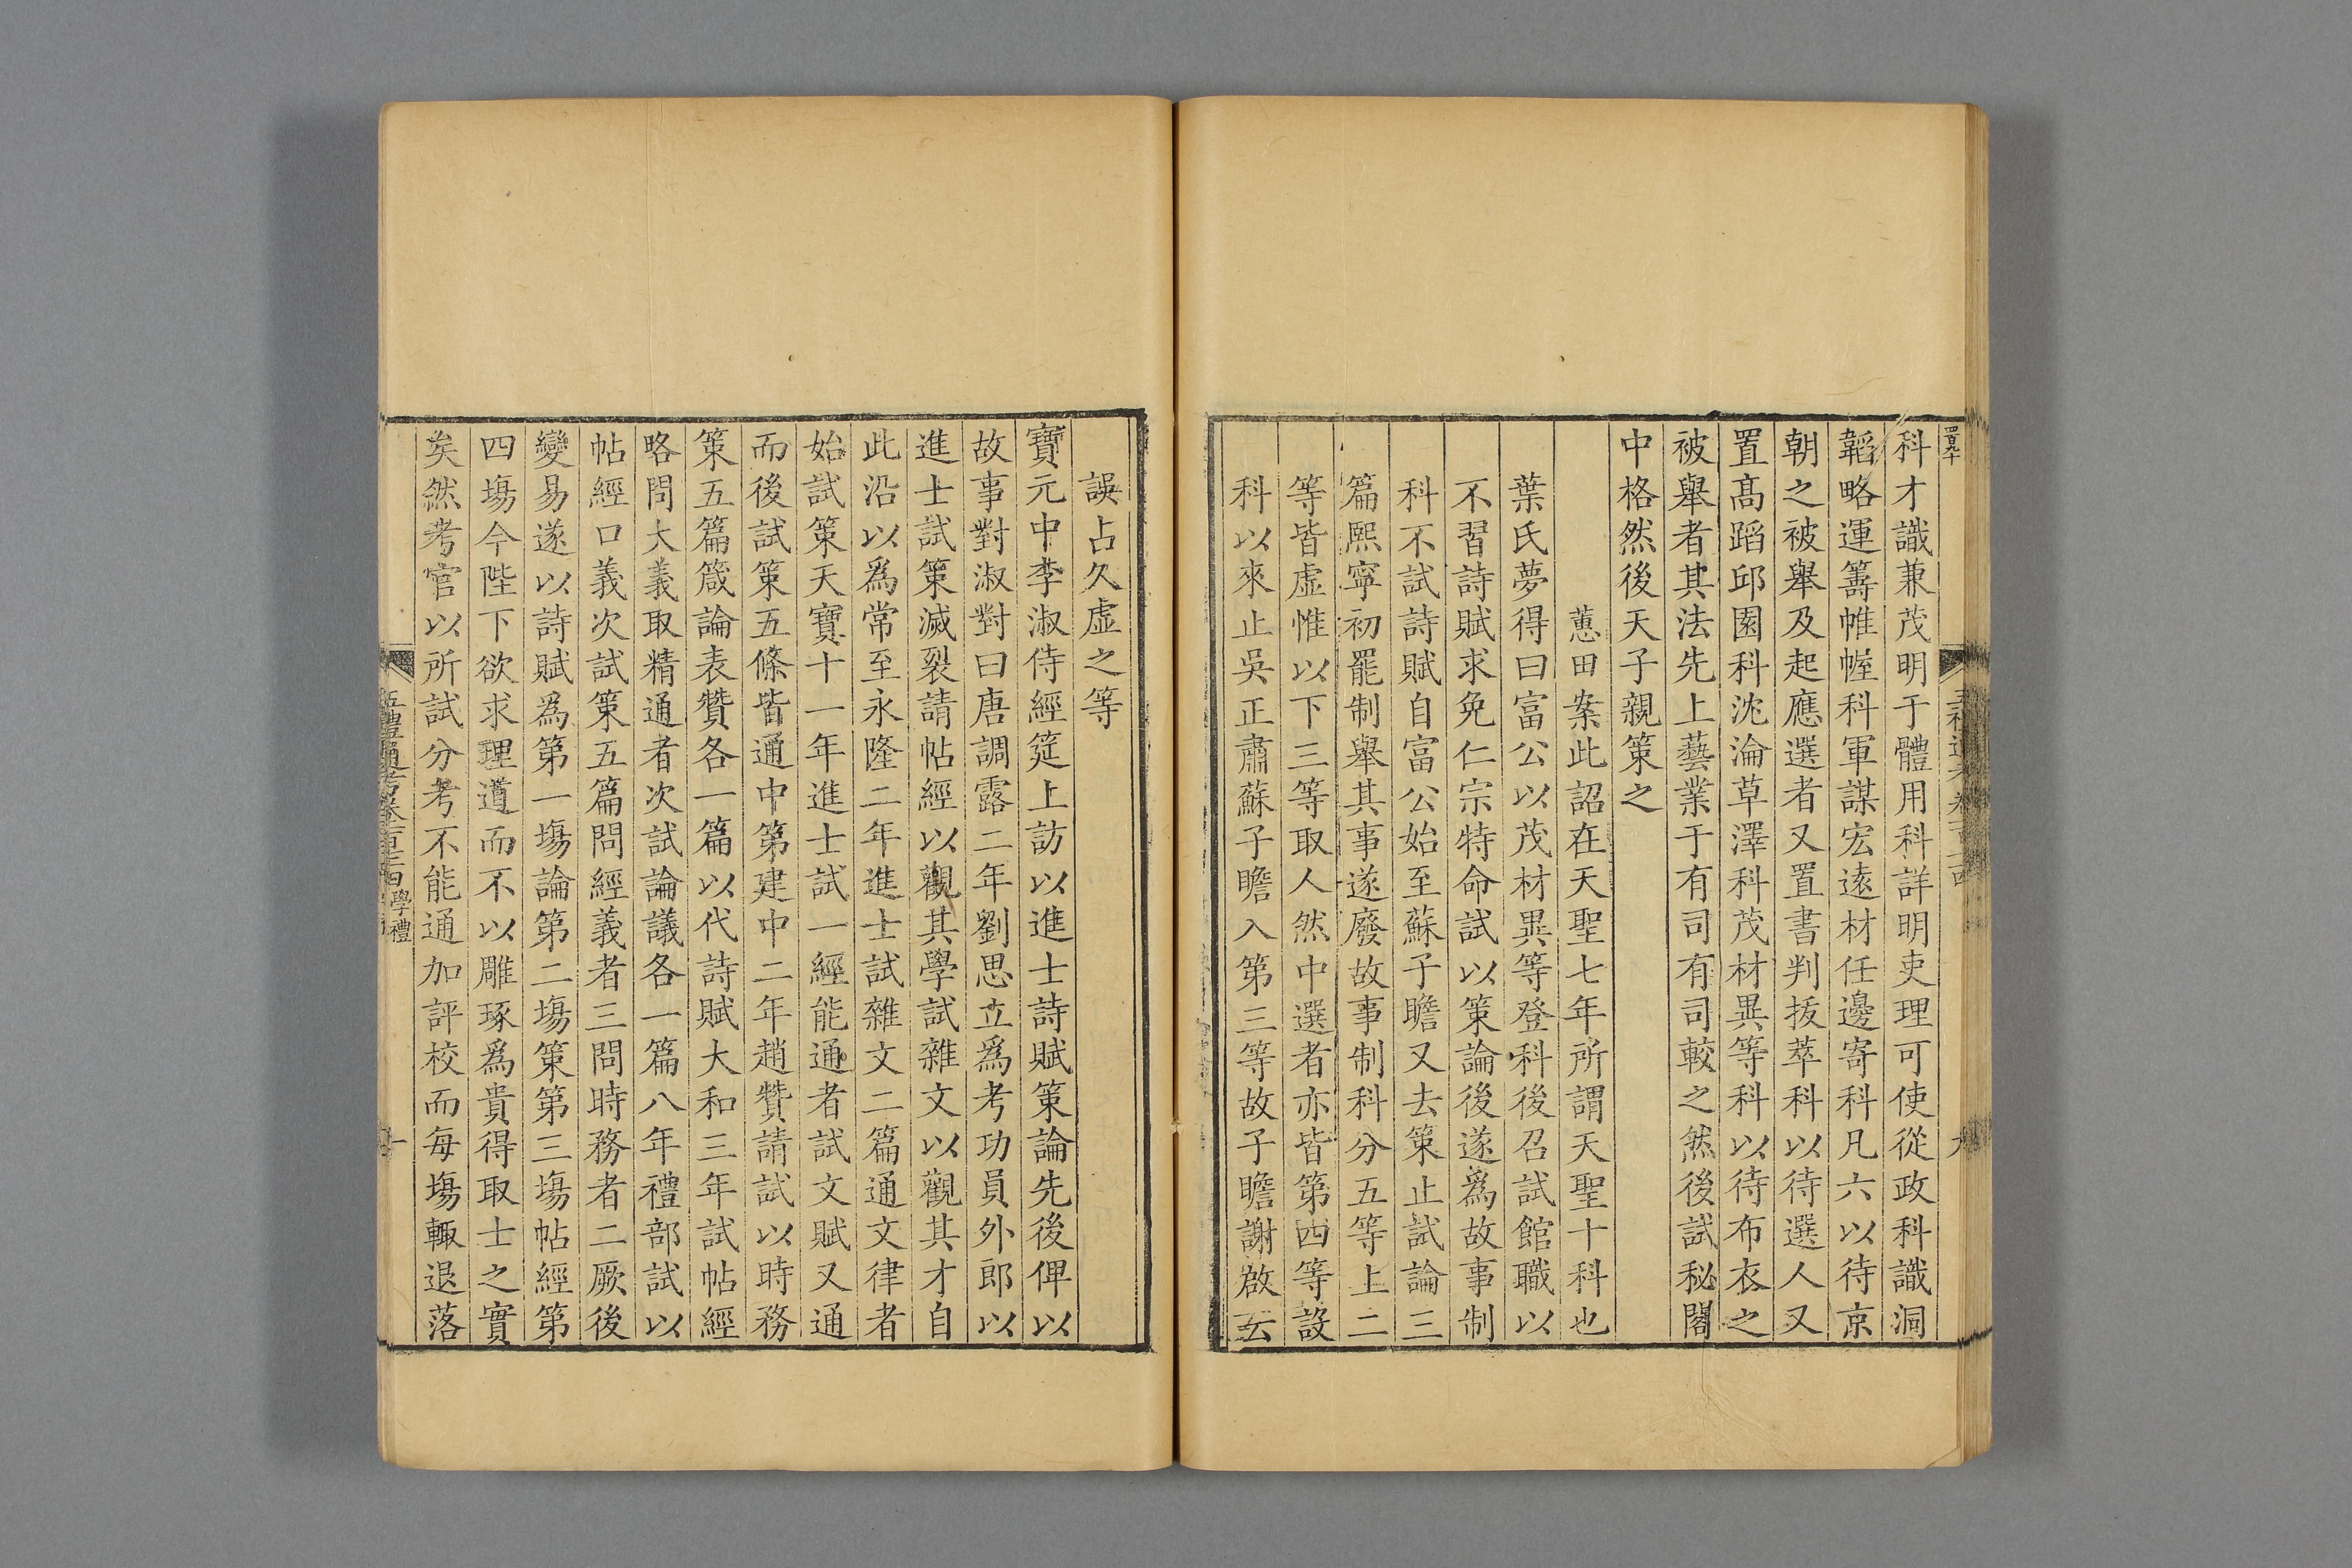 科才識兼茂明于體用科詳明吏理可使從政科識洞
韜略運籌帷幄科軍謀宏遠材任邊寄科凡六以待京
朝之被舉及起應選者又置書判拔萃科以待選人又
置髙蹈邱園科沈淪草澤科茂材異等科以待布衣之
被舉者其法先上藝業于有司有司較之然後試秘閣
中格然後天子親策之
蕙田案此詔在天聖七年所謂天聖十科也
葉氏夢得曰富公以茂材異等登科後召試館職以
不習詩賦求免仁宗特命試以策論後遂爲故事制
科不試詩賦自富公始至蘇子瞻又去策止試論三
篇熙寧初罷制舉其事遂廢故事制科分五等上二
等皆虛惟以下三等取人然中選者亦皆第四等設
科以來止吳正肅蘇子瞻入第三等故子瞻謝啟云
誤占久虛之等
寶元中李淑侍經筵上訪以進士詩賦策論先後俾以
故事對淑對曰唐調露二年劉思立爲考功員外郎以
進士試策滅裂請帖經以觀其學試雜文以觀其才自
此沿以爲常至永隆二年進士試雜文二篇通文律者
始試策天寶十一年進士試一經能通者試文賦又通
而後試策五條皆通中第建中二年趙贊請試以時務
策五篇箴論表贊各一篇以代詩賦大和三年試帖經
略問大義取精通者次試論議各一篇八年禮部試以
帖經口義次試策五篇問經義者三問時務者二厥後
變易遂以詩賦爲第一塲論第二塲策第三塲帖經第
四塲今陛下欲求理道而不以雕琢爲貴得取士之實
矣然考官以所試分考不能通加評校而每塲輙退落
五禮通考卷一百七十四 學禮